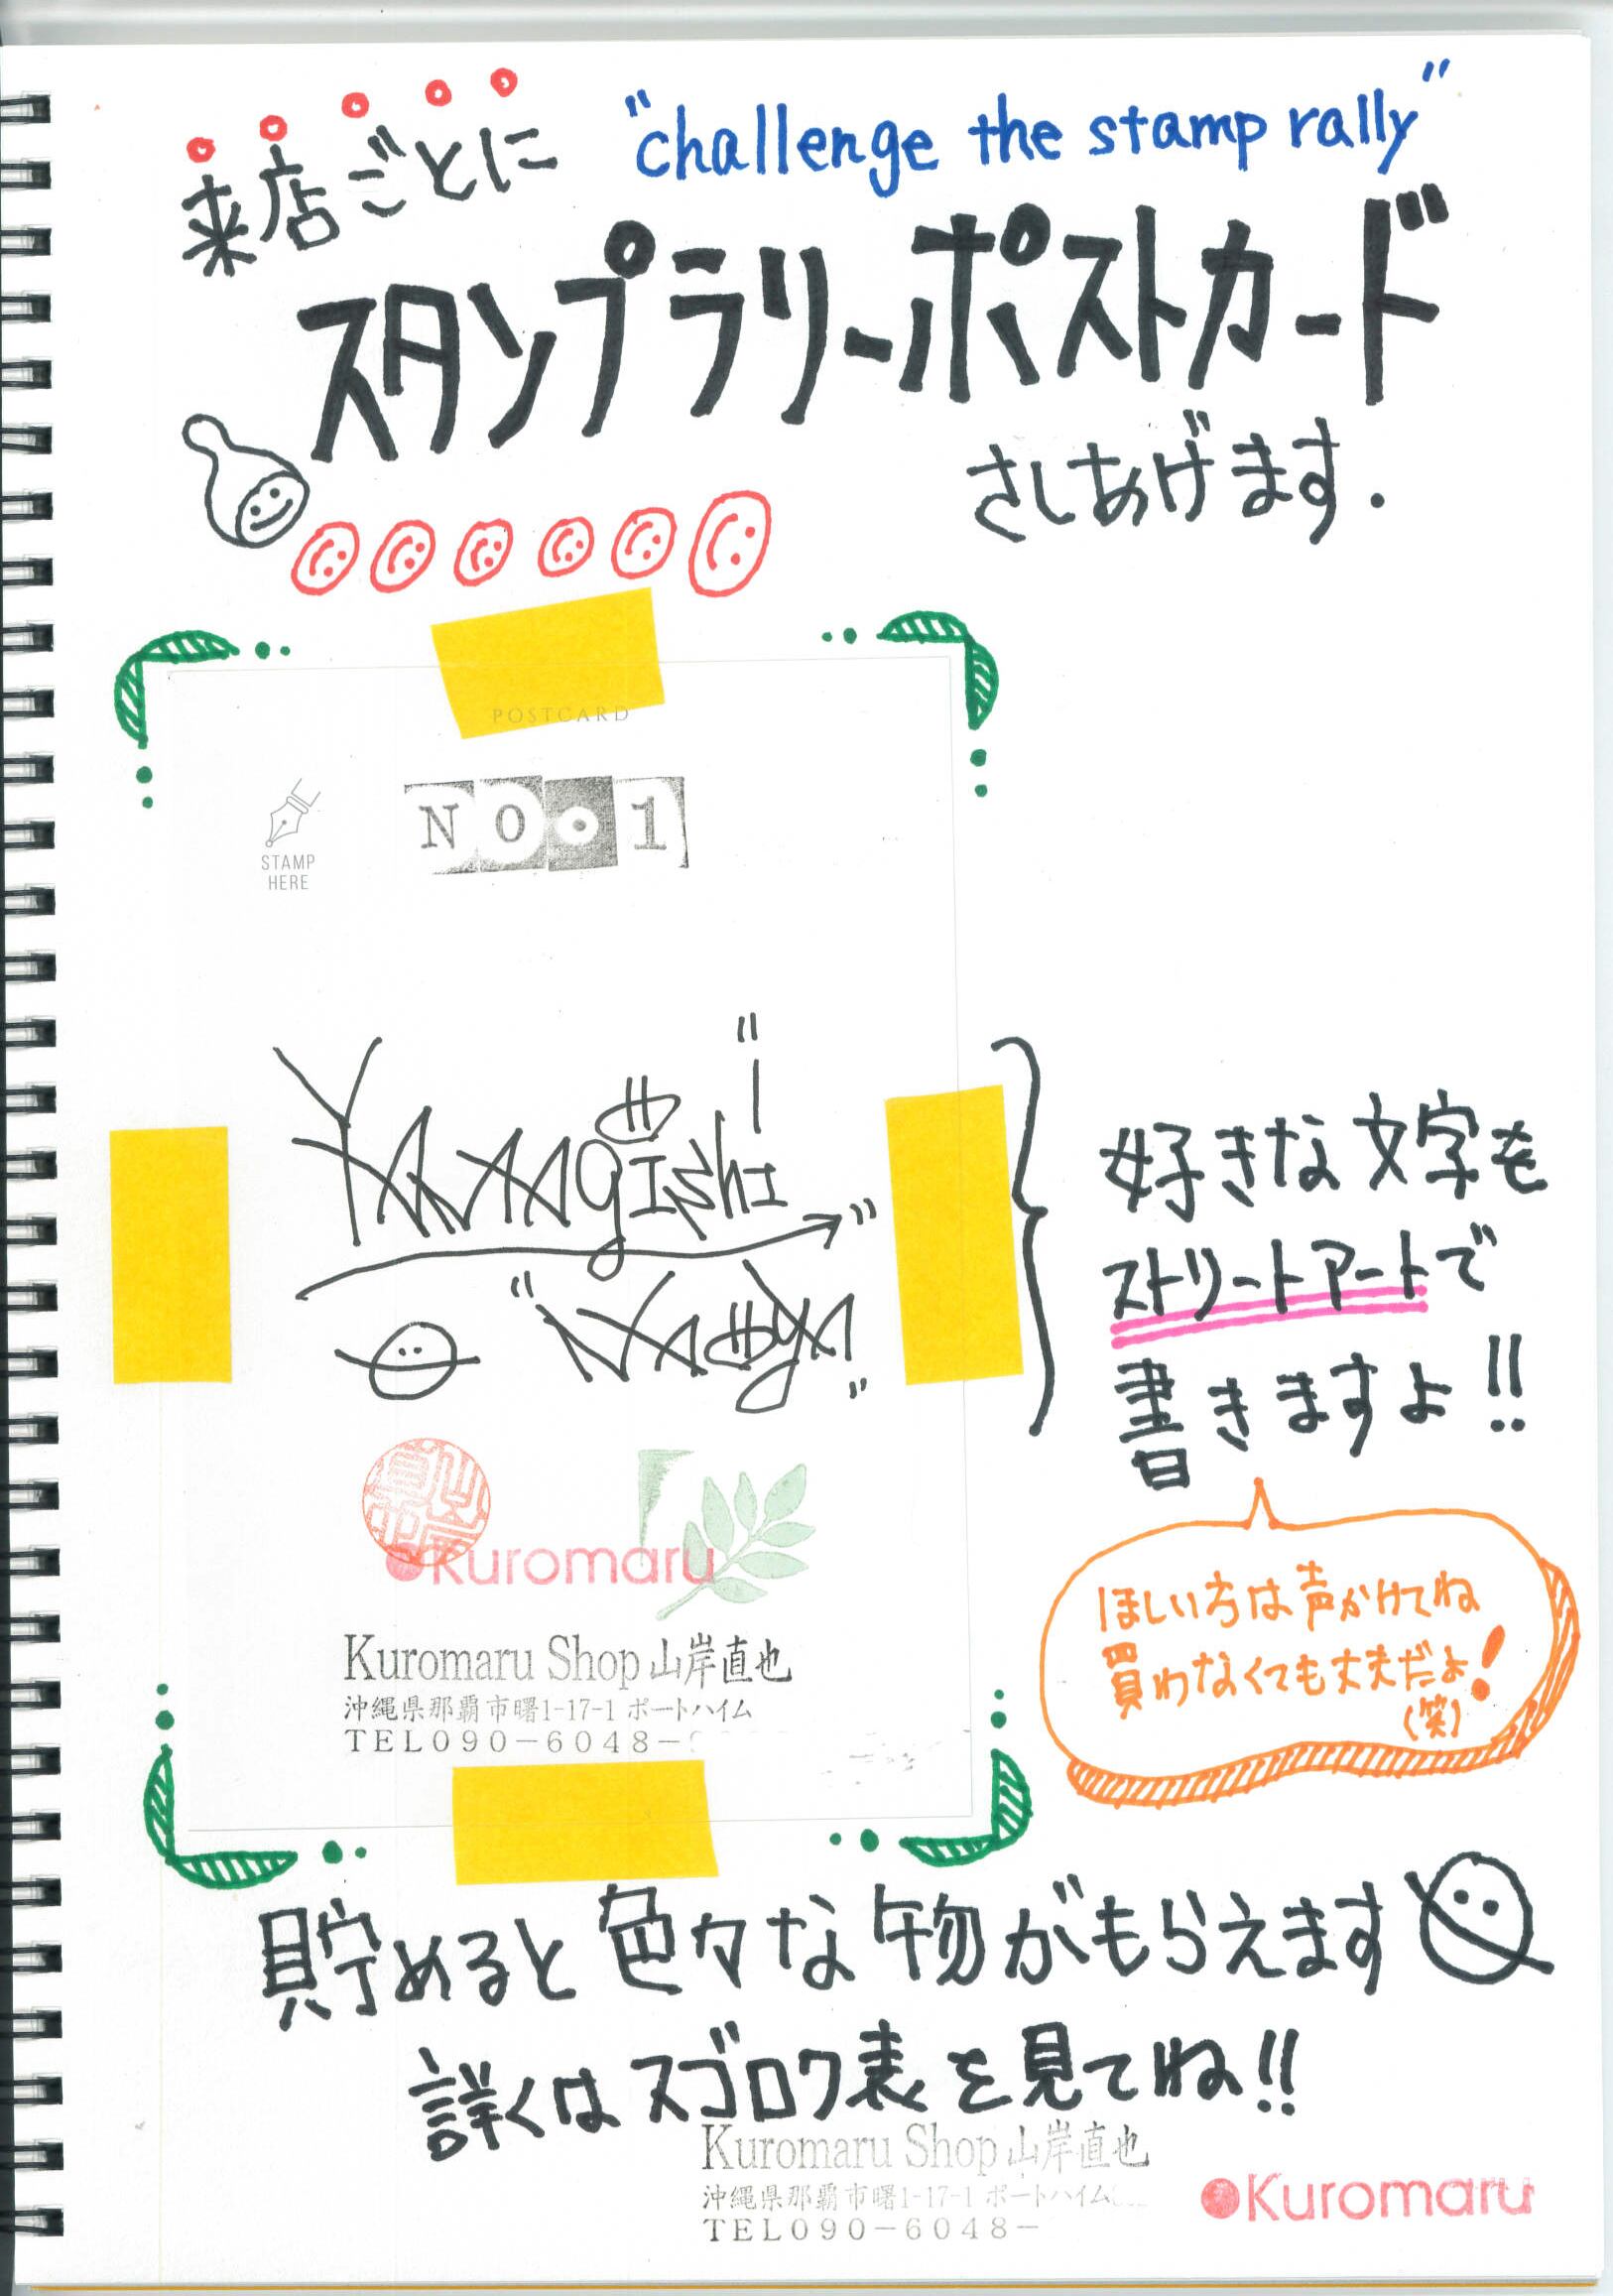 来店ごとに
"challenge the stamp rally"
スタンプラリーポストカード
さしあげます.
POSTCARD
STAMP
HERE
NO.1
YAMAgishi
"NAOya"
好きな文字を
ストリートアートで
書きますよ!!
Kuromaru
Kuromaru Shop 山岸直也
沖縄県那覇市曙1-17-1 ポートハイム
TEL090-6048-
ほしい方は声かけてね
買わなくても丈夫だよ!
(笑)
貯めると色々な物がもらえます
詳くはスゴロク表を見てね!!
Kuromaru Shop 山岸直也
沖縄県那覇市曙1-17-1 ポートハイム
TEL090-6048-
Kuromaru